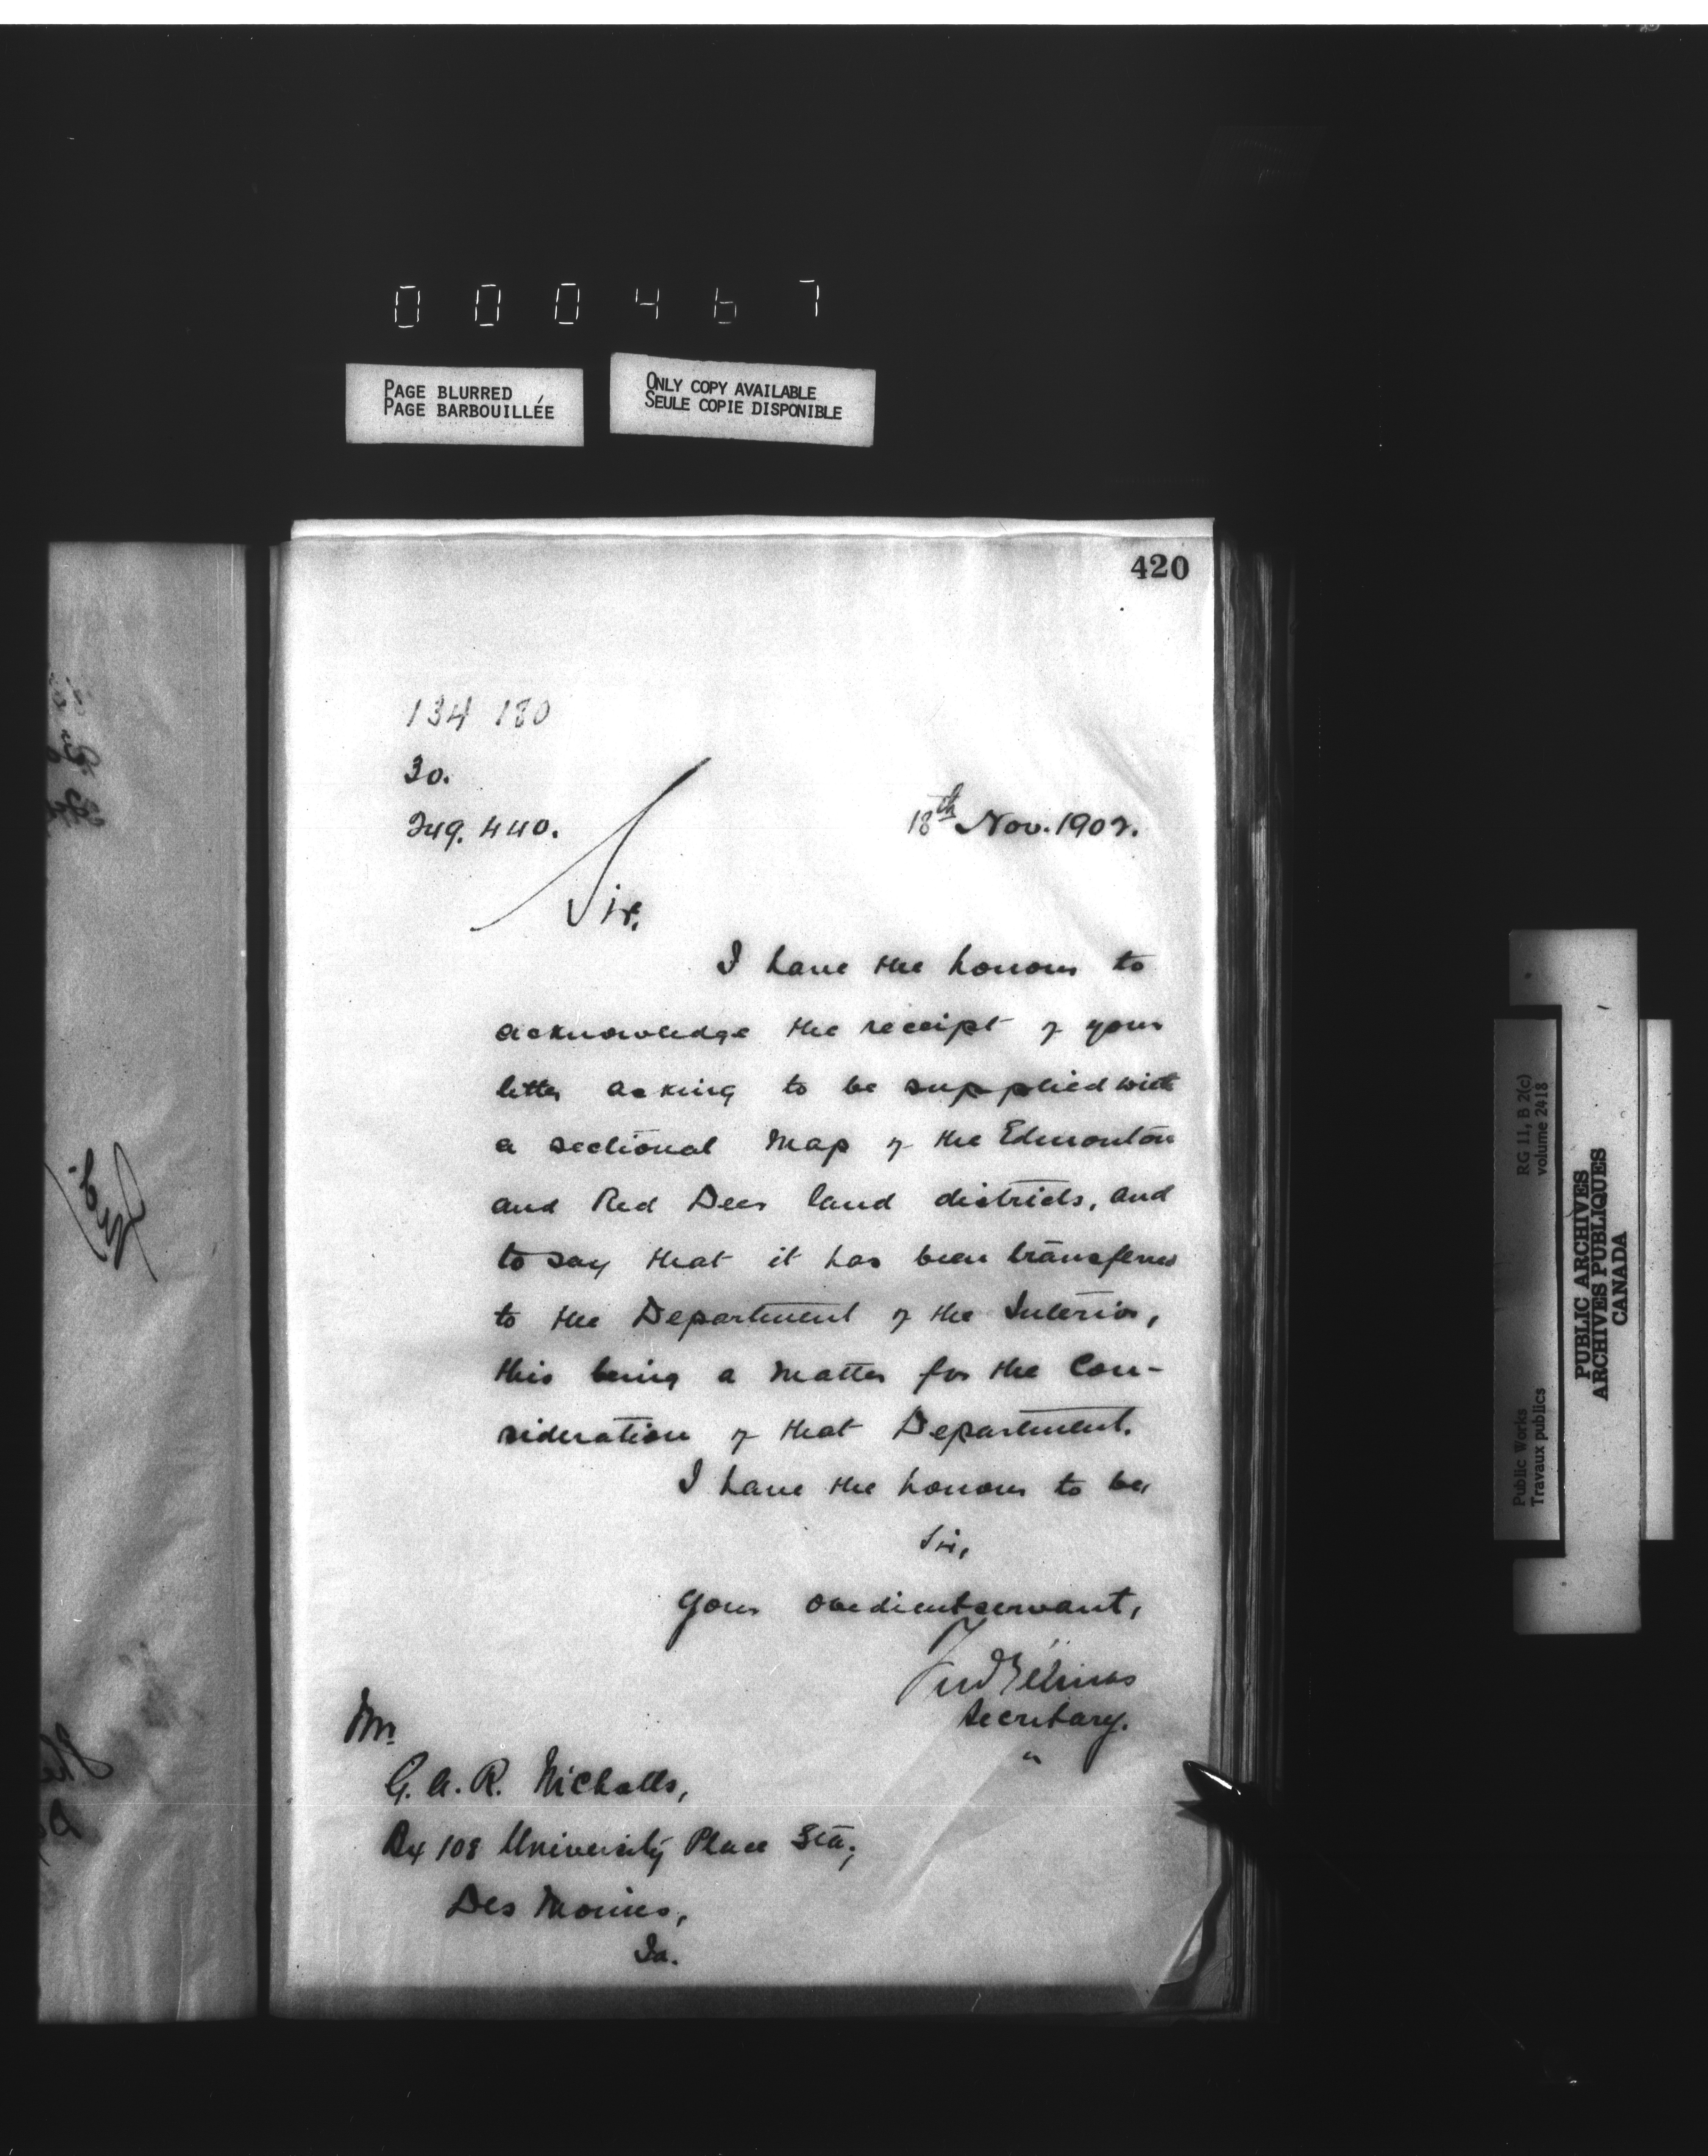 000467
PAGE BLURRED
PAGE BARBOUILLÉE
ONLY COPY AVAILABLE
SEULE COPIE DISPONIBLE
420
134 180
30.
249.440.
18th Nov. 1902.
Sir,
I have the honour to
acknowledge the receipt of your
letter asking to be supplied with
a sectional Map of the Edmonton
and Red Deer land districts, and
to say that it has been transferred
to the Department of the Interior,
this being a matter for the Con-
sideration of that Department.
I have the honour to be,
Sir,
Your obedient servant,
Fred Gélinas
Secretary.
Mr.
G. A. R. Nicholls,
Bx 108 University Place Sta;
Des Moines,
Ia.
Public Works
Travaux publics
RG 11, B 2(c)
volume 2418
PUBLIC ARCHIVES
ARCHIVES PUBLIQUES
CANADA